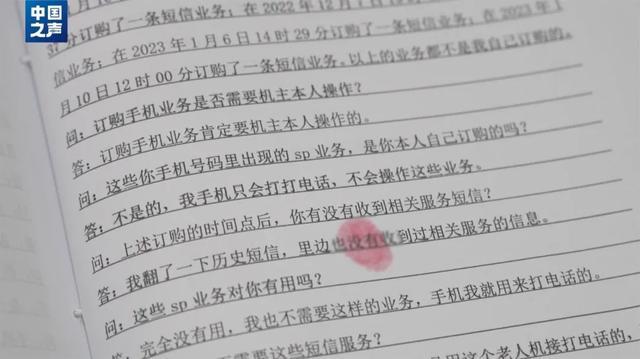 中国之声
分订购了一条短信业务；在 2022 年 12 月 7 日 1
37 分订购了一条短信业务；在 2023 年 1
信业务；在 2023 年 1 月 6 日 14 时 29 分订购了一条短信业务
月 10 日 12 时 00 分订购了一条短信业务。以上的业务都不是我自己订购的。
问：订购手机业务是否需要机主本人操作？
答：订购手机业务肯定要机主本人操作的。
问：这些你手机号码里出现的 sp 业务，是你本人自己订购的吗？
答：不是的，我手机只会打打电话，不会操作这些业务。
问：上述订购的时间点后，你有没有收到相关服务短信？
答：我翻了一下历史短信，里边也没有收到过相关服务的信息。
问：这些 sp 业务对你有用吗？
答：完全没有用，我也不需要这样的业务，手机我就用来打电话的。
问：
需要这些短信服务？
用这个老人机接打电话的，